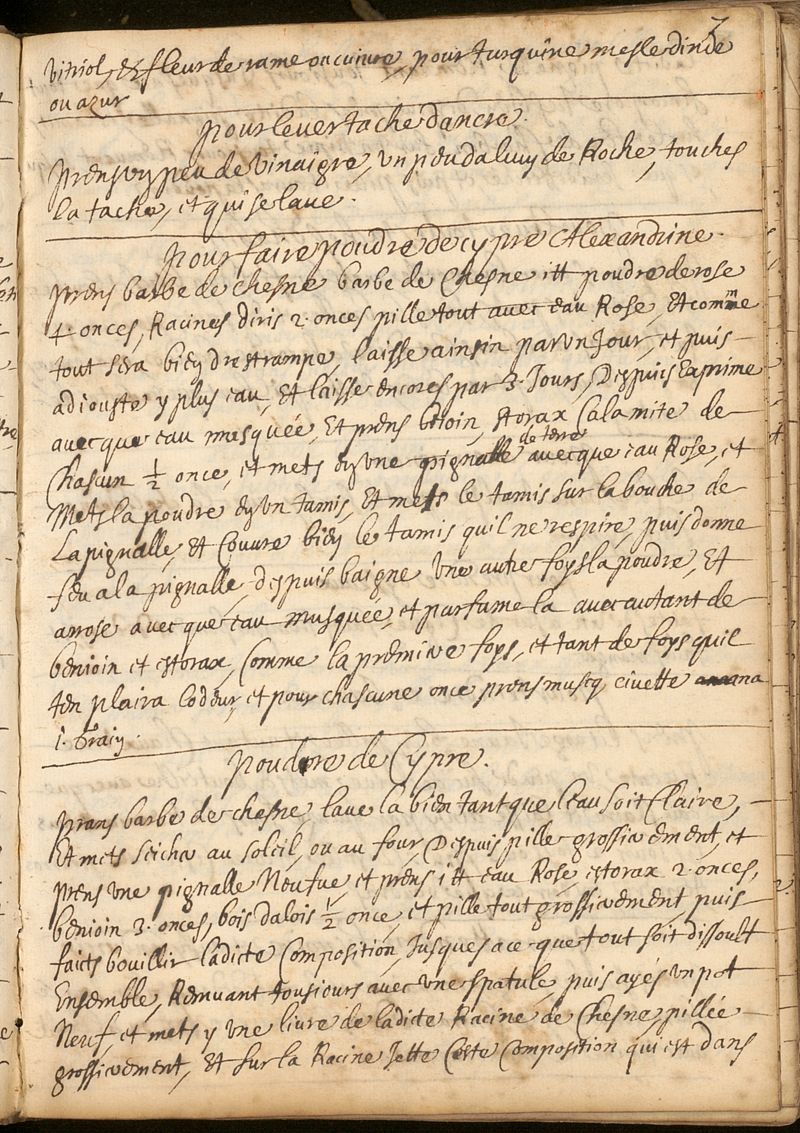 3
vitriol, et fleur de rame ou cuivre, pour turquine mesle dinde
ou azur
pour lever tache dancre.
prens ung peu de vinaigre, un peu daluy de Roche, touches
la tache, et qui se lave.
pour faire poudre de cypre Alexandrine.
prens barbe de chesne barbe de Chesne i ℔ poudre de rose
4. onces, Racines diris 2. onces pille tout avec eau Rose, Et comme
tout sera bien drestrampe, laisse ainsin par un Jour, et puis
adiouste y plus eau, Et laisse encores par 3. Jours, Despuis Exprime
avecque eau musquée, Et prens benioin, storax Calamite de
Chascun ½ once, et mets dens une pignalle de tere avecque eau Rose, et
Mets la poudre en un tamis, Et mets le tamis sur la bouche de
La pignalle, Et Couvre bien le tamis quil ne respire, puis donne
feu a la pignalle, despuis baigne une autre foys la poudre, Et
arrose avecque eau musquée, et parfume la avec autant de
benioin et estorax, Comme la premiere foys, et tant de foys quil
ten plaira lodeur, et pour chascune once prens muscq civette ana
i. Grain.
poudre de Cypre.
prans barbe de chesne, lave la bien tant que leau soit Claire,
Et mets seicher au soleil, ou au four, Despuis pille grossierement, et
prens une pignalle Neufue, et prens i ℔ eau Rose, estorax 2 onces,
benioin 3. onces, bois dalois ½ once, et pille tout grossierement, puis
faicts bouillir ladicte Composition, Jusques a ce que tout soit dissoult
Ensemble, Remuant tousiours avec une spatule, puis ayés un pot
Neuf, et mets y une livre de ladicte Racine de Chesne, pillée
grossierement, Et sur la Racine Jette Ceste Composition qui est dans